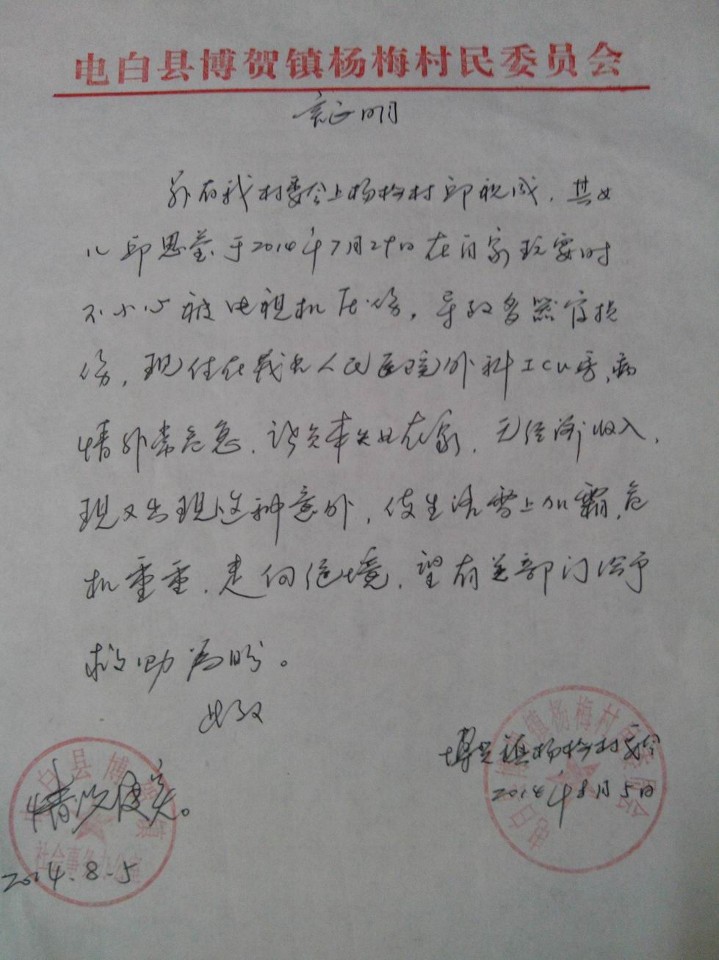 电白县博贺镇杨梅村民委员会
证明
兹有我村委会上杨梅村邱祝成，其女
儿邱思莹于2014年7月29日在自家玩耍时
不小心被电视机压伤，导致多器官损
伤，现住在茂名人民医院外科ICU房，病
情非常危急，该员本失业在家，无经济收入，
现又出现这种意外，使生活雪上加霜，危
机重重，走向绝境，望有关部门给予
救助为盼。
此致
博贺镇杨梅村委会
2014年8月5日
情况属实。
2014.8.5